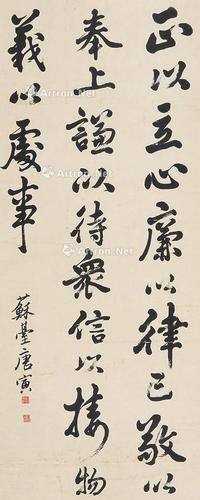 正以立心廉以律己敬以
奉上謙以待衆信以接物
義以處事
蘇臺唐寅